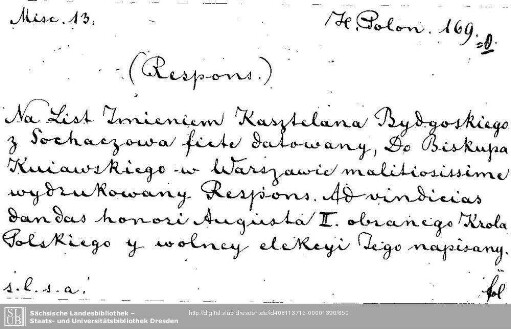 Misc. 13.
H. Polon. 169.
(Respons.)
Na List Imieniem Kasztelana Bydgoskiego
z Sochaczowa ficte datowany, Do Biskupa
Kuiawskiego w Warszawie malitiosissime
wydrukowany Respons. Ad vindicias
dandas honori Augusta II. obranego Krola
Polskiego y wolney elekcyi Jego napisany.
s. l. s. a.
fol
SLUB
Sächsische Landesbibliothek –
Staats- und Universitätsbibliothek Dresden